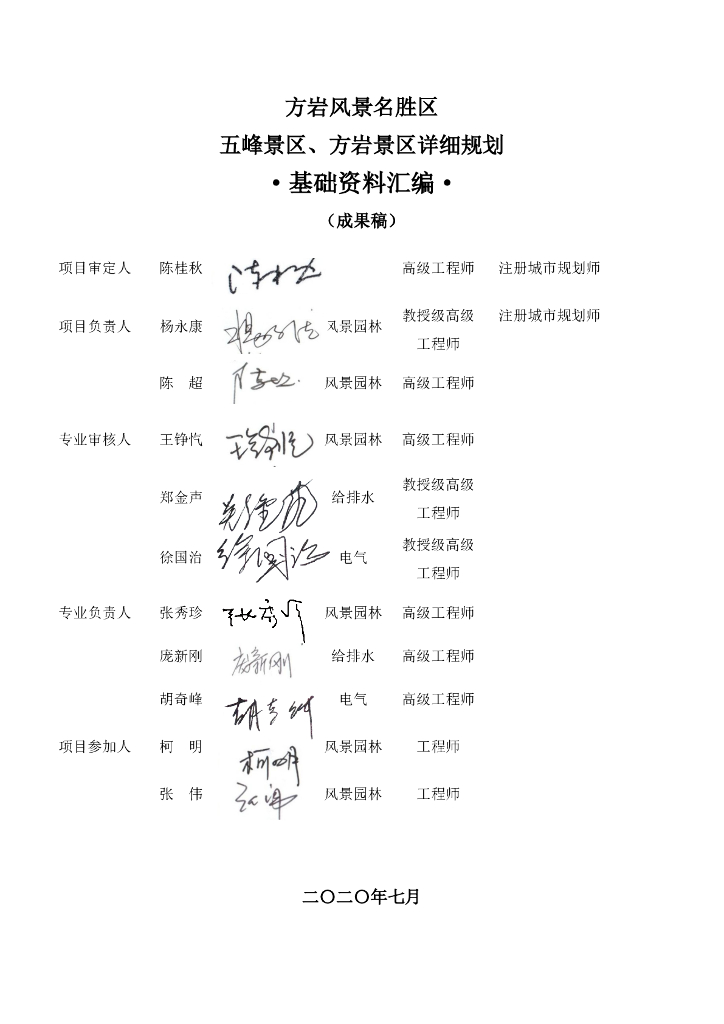 方岩风景名胜区
五峰景区、方岩景区详细规划
·基础资料汇编·
（成果稿）
项目审定人 陈桂秋 高级工程师 注册城市规划师
项目负责人 杨永康 风景园林 教授级高级工程师 注册城市规划师
陈 超 风景园林 高级工程师
专业审核人 王铮忾 风景园林 高级工程师
郑金声 给排水 教授级高级工程师
徐国治 电气 教授级高级工程师
专业负责人 张秀珍 风景园林 高级工程师
庞新刚 给排水 高级工程师
胡奇峰 电气 高级工程师
项目参加人 柯 明 风景园林 工程师
张 伟 风景园林 工程师
二〇二〇年七月